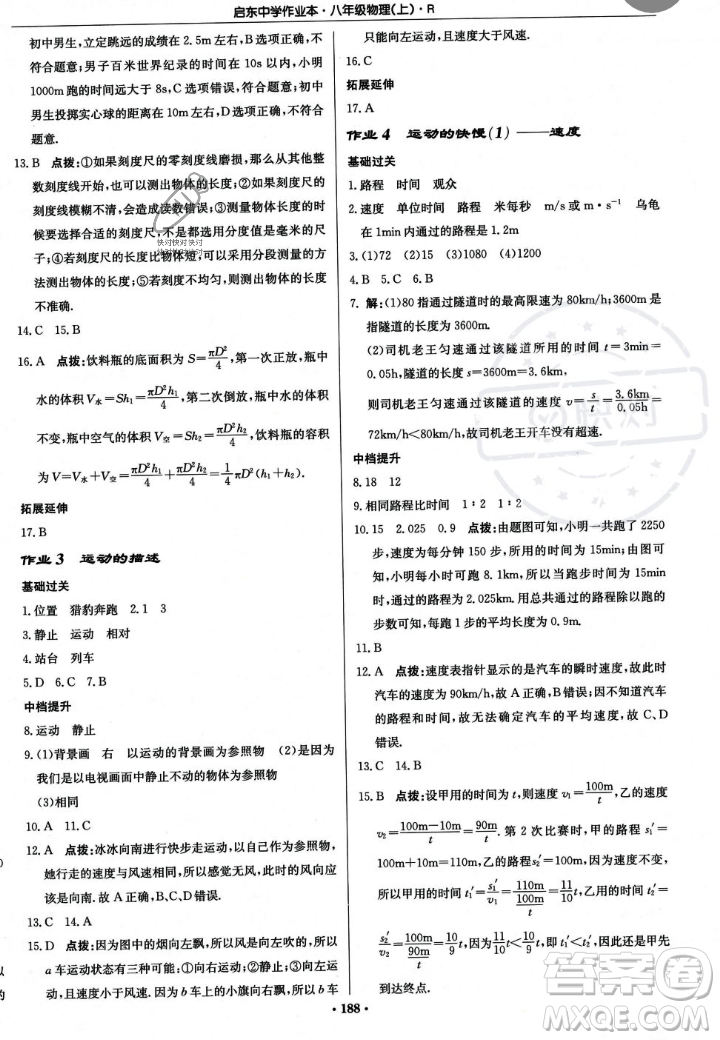 启东中学作业本·八年级物理(上)·R
初中男生,立定跳远的成绩在 2.5m 左右,B 选项不
符合题意;男子百米世界纪录的时间在 10s 左右,小明
1000m 跑的时间远大于 8s,C 选项符合题意;初中
男生投掷实心球的距离在 10m 左右,D 选项不符合
题意.
13. B 点拨:①如果刻度尺的零刻度线磨损,那么从其他
整数刻度线开始,也可以测出物体的长度;②刻度尺的
刻度线模糊不清,会造成读数错误;③测量物体的长度
时候要选择合适的刻度尺,不是都选用分度值是毫米的尺
子;④刻度尺比物体短,可以采用分段测量等特殊的方
法测出物体的长度;⑤若刻度不均匀,则测量长度
不准确.
14. C 15. B
16. A 点拨:饮料瓶的底面积为 S=πD²/4,第一次正放,瓶中
水的体积 V水=Sh₁=πD²h₁/4,第二次倒放,瓶中水的体积
不变,瓶中空气的体积 V空=Sh₂=πD²h₂/4,饮料瓶的容积
为 V=V水+V空=πD²h₁/4+πD²h₂/4=1/4πD²(h₁+h₂).
拓展延伸
17. B
作业 3 运动的描述
基础过关
1. 位置 猎豹奔跑 2. 1 3
3. 静止 运动 相对
4. 站台 列车
5. D 6. C 7. B
中档提升
8. 运动 静止
9. (1)背景画 右 以运动的背景画为参照物 (2)是因为
我们是以电视画面中静止不动的物体为参照物
(3)相同
10. A 11. C
12. A 点拨:冰冰向南进行快步走运动,以自己作为参照物,
她行走的速度与风速相同,所以感觉无风,此时的风向应
该是向南的.故 A 正确,B、C、D 错误.
13. C 14. A
15. D 点拨:因为图中的烟向左飘,所以风是向左吹的,所以
a 车运动状态有三种可能:①向右运动;②静止;③向左运动,
且速度小于风速.因为 b 车上的小旗向右飘,所以 b 车
只能向左运动,且速度大于风速.
16. C
拓展延伸
17. A
作业 4 运动的快慢(1)——速度
基础过关
1. 路程 时间 观众
2. 速度 单位时间 路程 米每秒 m/s 或 m·s⁻¹ 乌龟
在 1min 内通过的路程是 1.2m
3. (1)72 (2)15 (3)1080 (4)1200
4. B 5. C 6. C
7. 解:(1)80 指通过隧道时的最高限速为 80km/h;3600m
指隧道的长度为 3600m.
(2)司机老王匀速通过该隧道所用的时间 t=3min=
0.05h,隧道的长度 s=3600m=3.6km,
则司机老王匀速通过该隧道的速度 v=s/t=3.6km/0.05h=
72km/h<80km/h,故司机老王开车没有超速.
中档提升
8. 18 12
9. 相同路程比时间 1∶2 1∶2
10. 15 2.025 0.9 点拨:由题图可知,小明一共走了 2250
步,速度为每分钟 150 步,所用的时间为 15min;由题图
可知,小明每小时走 8.1km,所以走了 15min 后,小明
通过的路程为 2.025km.用总共通过的路程除以总共的
步数可知,小明每步的平均长度为 0.9m.
11. B
12. A 点拨:速度表指针显示的是汽车的瞬时速度,故此时
汽车的速度为 90km/h,故 A 正确,B 错误;因不知道汽车
的路程和时间,故无法确定汽车的平均速度,故 C、D
错误.
13. C 14. B
15. B 点拨:设甲用的时间为 t,则速度 v₁=100m/t,乙的速度
v₂=(100m−10m)/t=90m/t.第 2 次比赛时,甲的路程 s₁′=
100m+10m=110m,乙的路程 s₂′=100m,因为速度不变,
所以甲用时 t₁′=s₁′/v₁=110m/(100m/t)=11/10t,乙用时 t₂′=
s₂′/v₂=100m/(90m/t)=10/9t,因为 11/10t<10/9t,即 t₁′<t₂′,所以还是甲先
到达终点.
·188·
快对快对快对
快对快对
作业答案
MXQE.COM